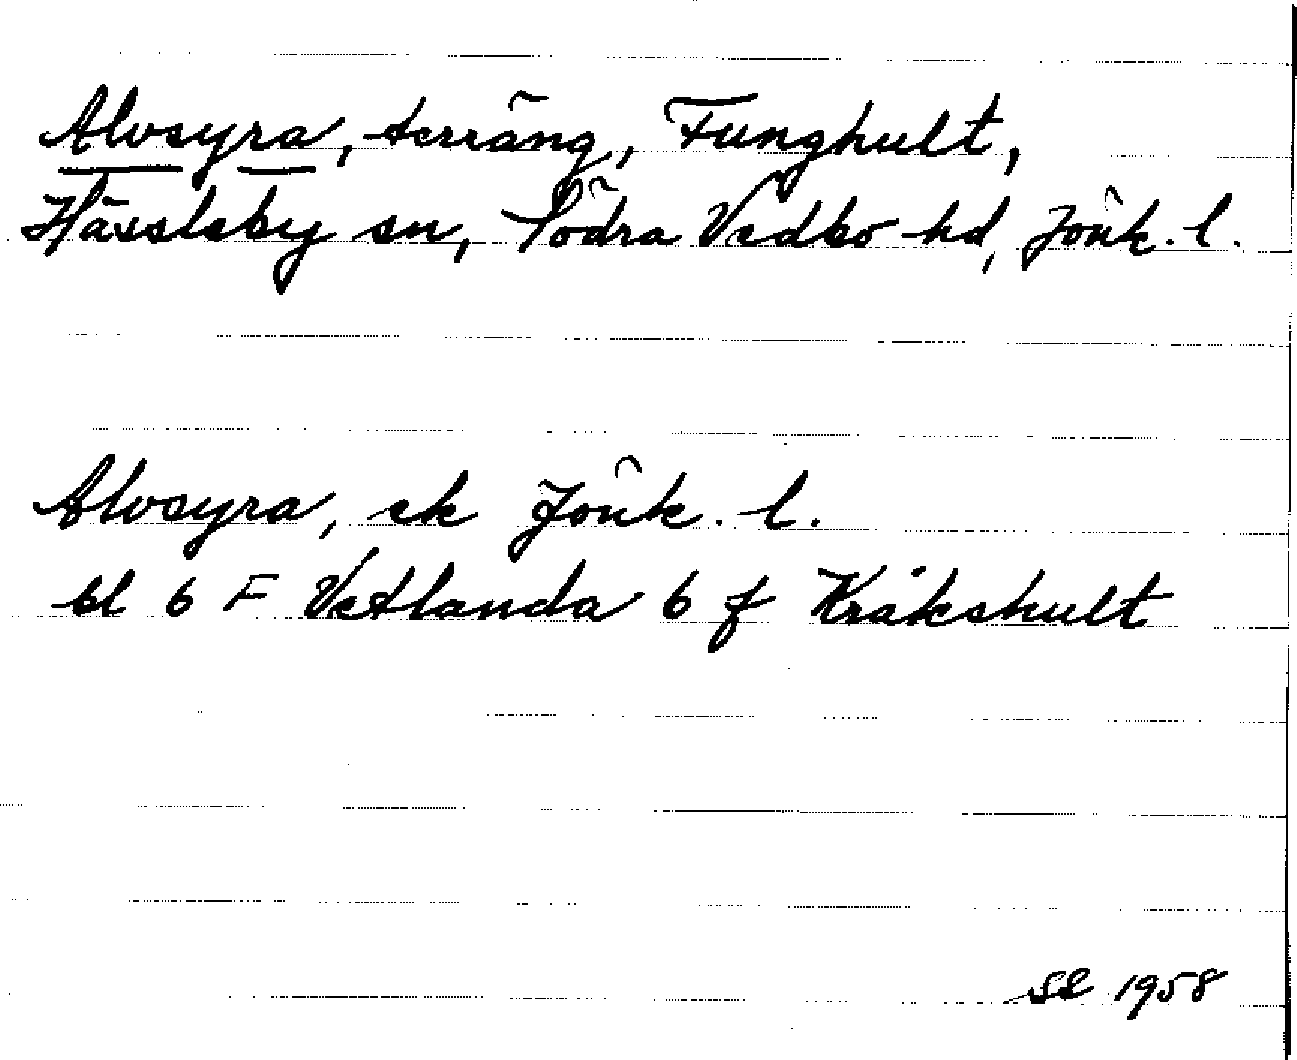 Alvsyra, terräng, Funghult,
Hässleby sn, Södra Vedbo hd, Jönk. l.
Alvsyra, ek Jönk. l.
bl 6 F Vetlanda 6 f Kråkshult
SE 1958